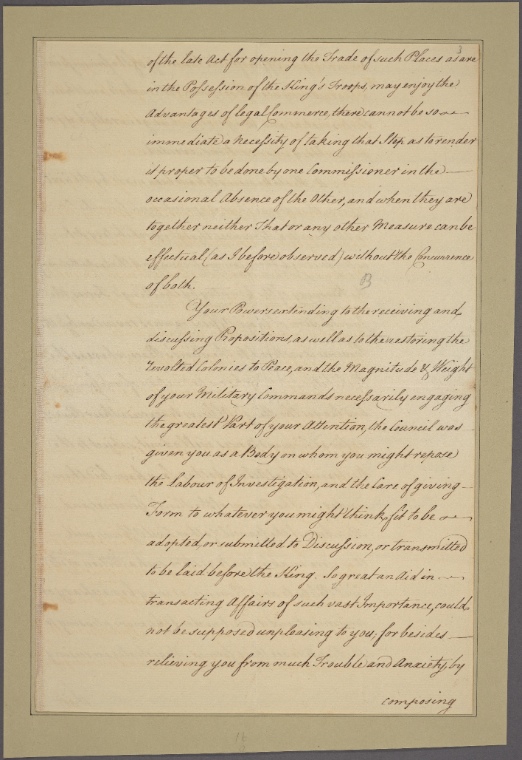 of the late Act for opening the Trade of such Places as are
in the Possession of the King's Troops, may enjoy the
Advantages of legal Commerce, there cannot be so
immediate a Necessity of taking that Step as to render
it proper to be done by one Commissioner in the
occasional Absence of the Other, and when they are
together neither That or any other Measure can be
effectual (as I before observed) without the Concurrence
of both.
Your Powers extending to the receiving and
discussing Propositions, as well as to the restoring the
revolted Colonies to Peace, and the Magnitude & Weight
of your Military Commands necessarily engaging
the greatest Part of your Attention, the Council was
given you as a Body on whom you might repose
the Labour of Investigation, and the Care of giving
Form to whatever you might think fit to be
adopted, or submitted to Discussion, or transmitted
to be laid before the King. So great an Aid in
transacting Affairs of such vast Importance, could
not be supposed unpleasing to you; for besides
relieving you from much Trouble and Anxiety, by
composing